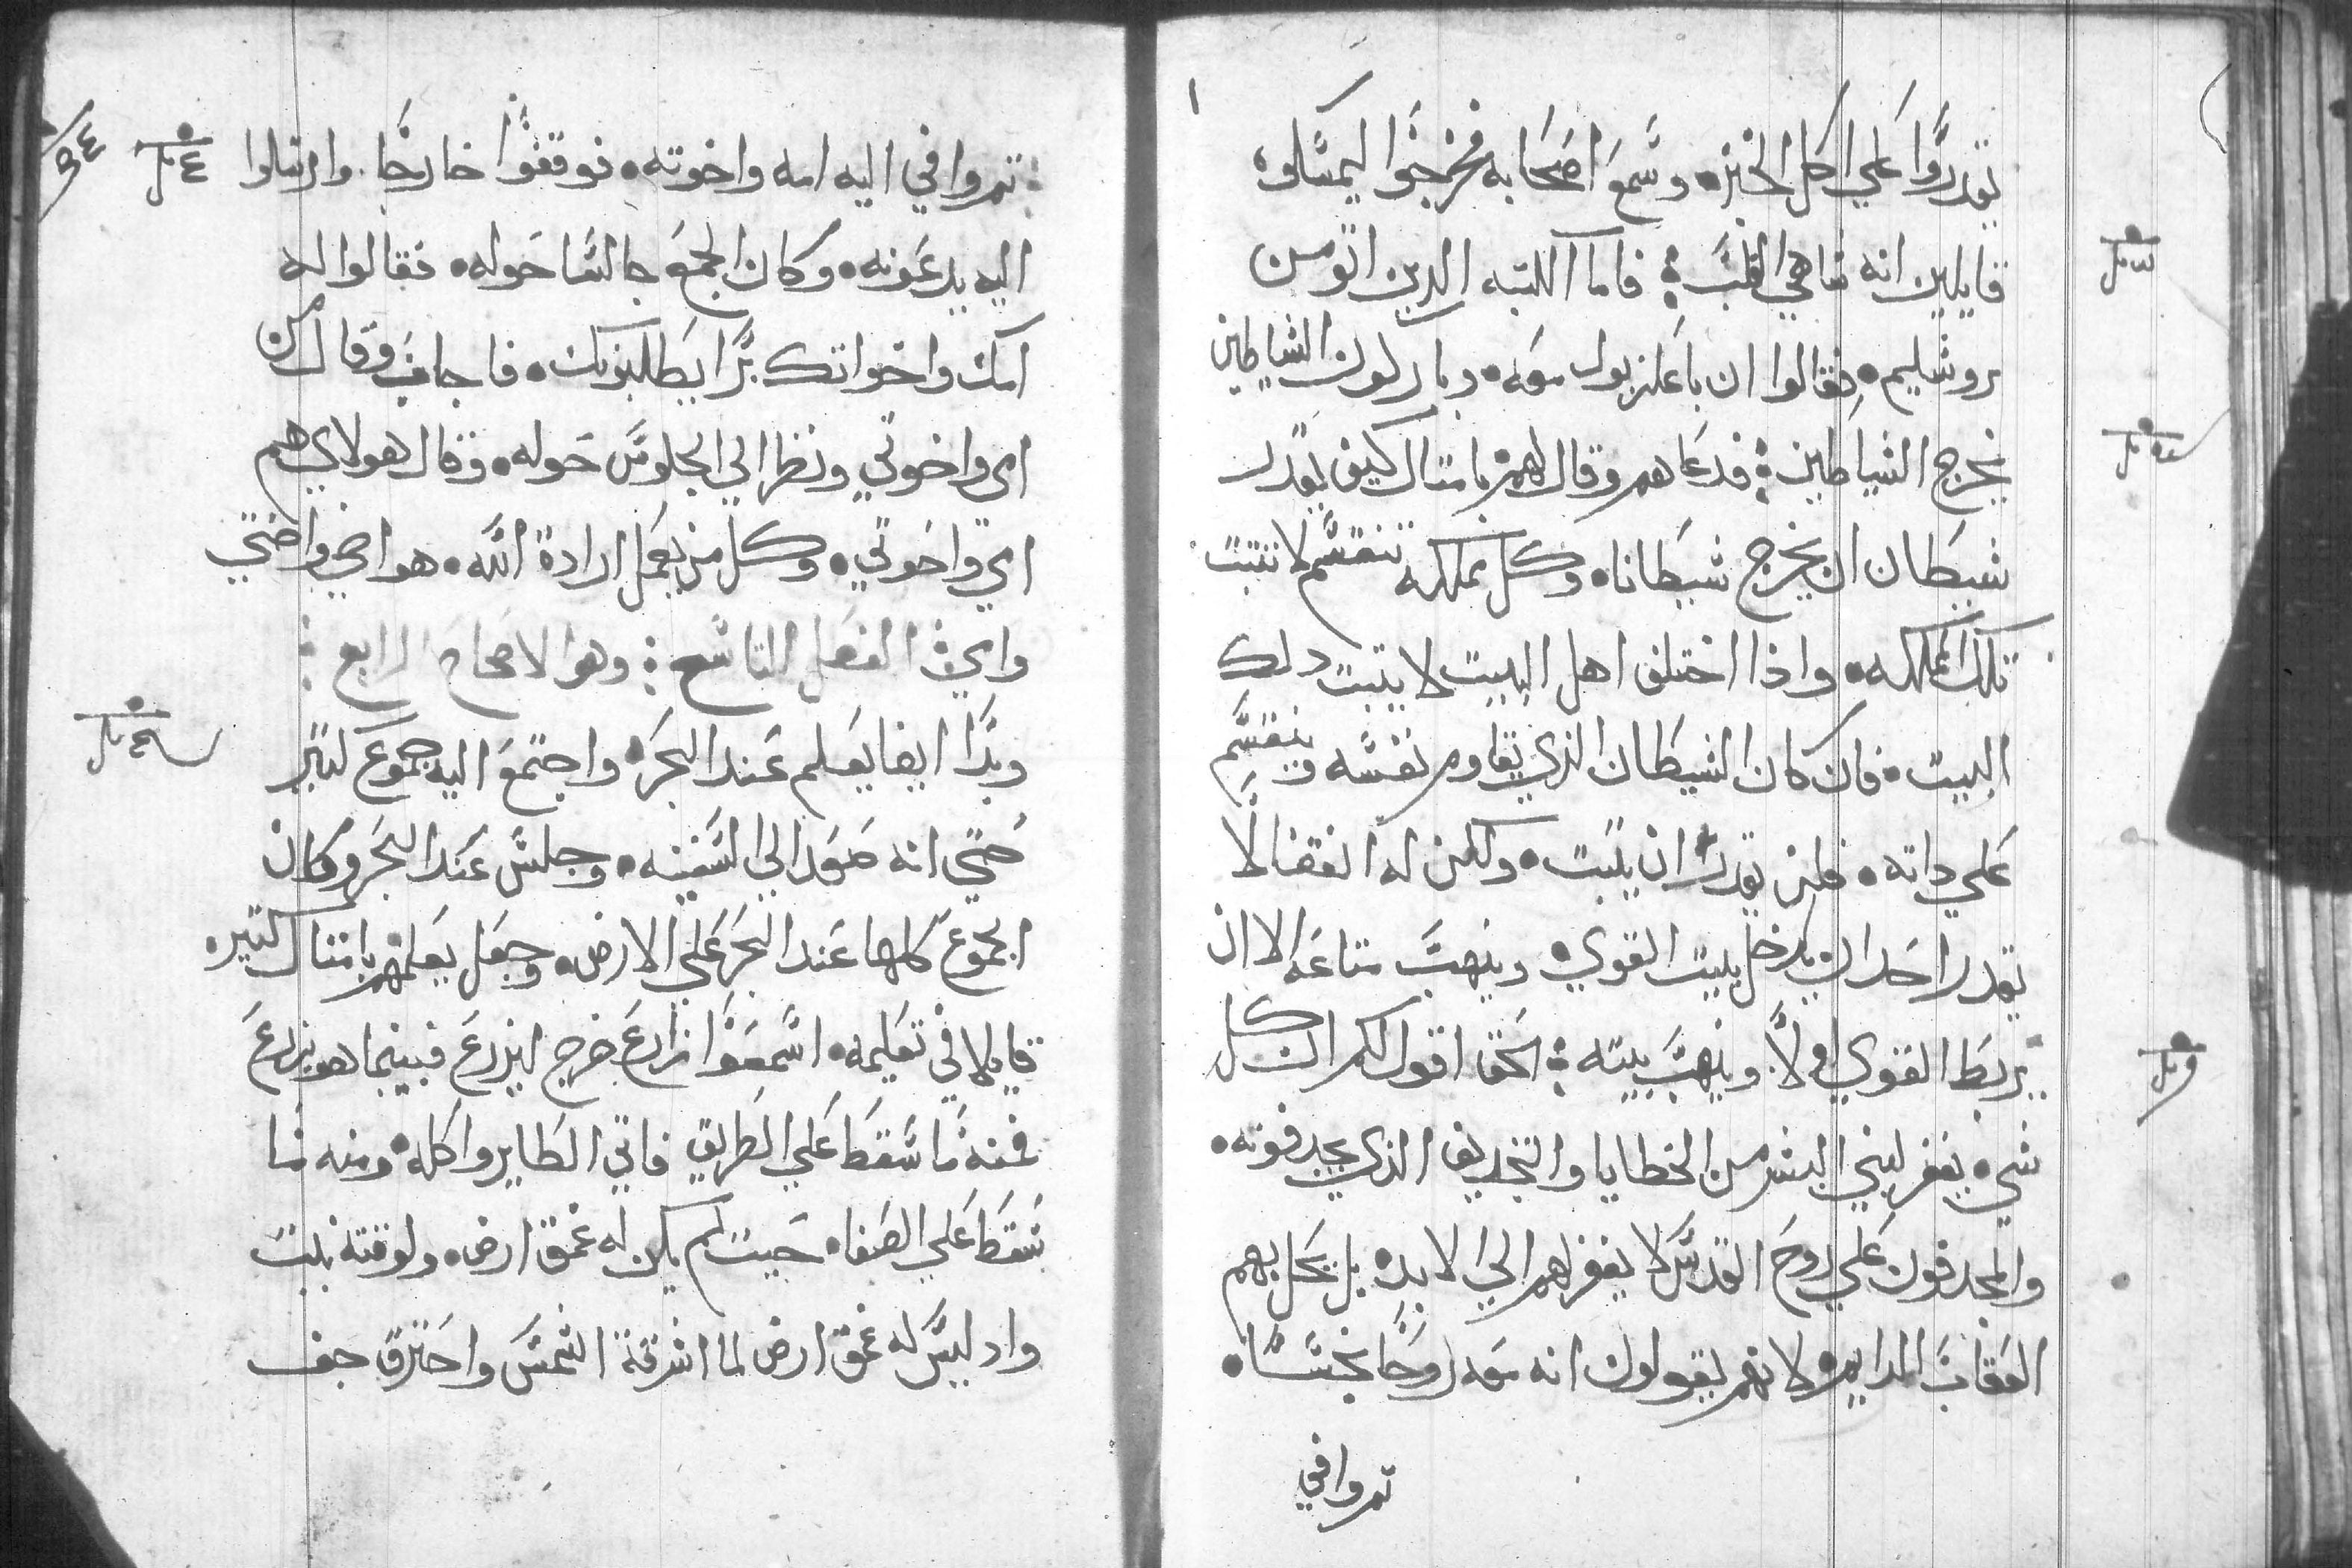 يقدروا علي اكل الخبز. وسمع اصحابه فخرجوا ليمسكوه
قايلين انه تاهي القلب: فاما الكتبه الدين اتو من
يروشليم. فقالوا ان باعلزبول معه. وباركون الشياطين
يخرج الشياطين: فدعاهم وقال لهم بامتال كيف يقدر
شيطان ان يخرج شيطانا. وكل مملكه تنقسم لا تتبت
تلك المملكه. واذا اختلف اهل البيت لا يتبت دلك
البيت. فان كان الشيطان الذي يقاوم نفسه وينقسم
علي داته. فلن يقدر ان يتبت. ولكن له انقضا لا
يقدر احد ان يدخل بيت القوي. وينهب متاعه الا ان
يربط القوي اولا. وينهب بيته: الحق اقول لكم ان كل
شي. يغفر لبني البشر من الخطايا والتجديف الذي يجدفونه.
والمجدفون علي روح القدس لا يغفر لهم الي الابد. بل يحل بهم
العقاب الدايم. لانهم يقولون انه معه روحا نجسا.
تم وافي
تم وافي اليه امه واخوته. فوقفوا خارجا. وارسلوا
اليه يدعونه. وكان الجمع جالسا حوله. فقالوا له
امك واخواتك برا يطلبونك. فاجاب وقال من
امي واخوتي ونظر الي الجلوس حوله. وقال هولاي هم
امي واخوتي. وكل من يعمل ارادة الله. هو اخي واختي
وامي: الفصل التاسع: وهو الاصحاح الرابع:
وبدا ايضا يعلم عند البحر. واجتمع اليه جموع كتير
حتي انه صعد الي السفينه. وجلس عند البحر وكان
الجموع كلها عند البحر علي الارض. وجعل يعلمهم بامتال كتير.
قايلا في تعليمه. اسمعوا زارع خرج ليزرع فبينما هو يزرع
فمنه ما سقط علي الطريق فاتي الطاير واكله. ومنه ما
سقط علي الصفا. حيت لم يكن له عمق ارض. ولوقته نبت
واد ليس له عمق ارض لما اشرقة الشمس واحترق جف